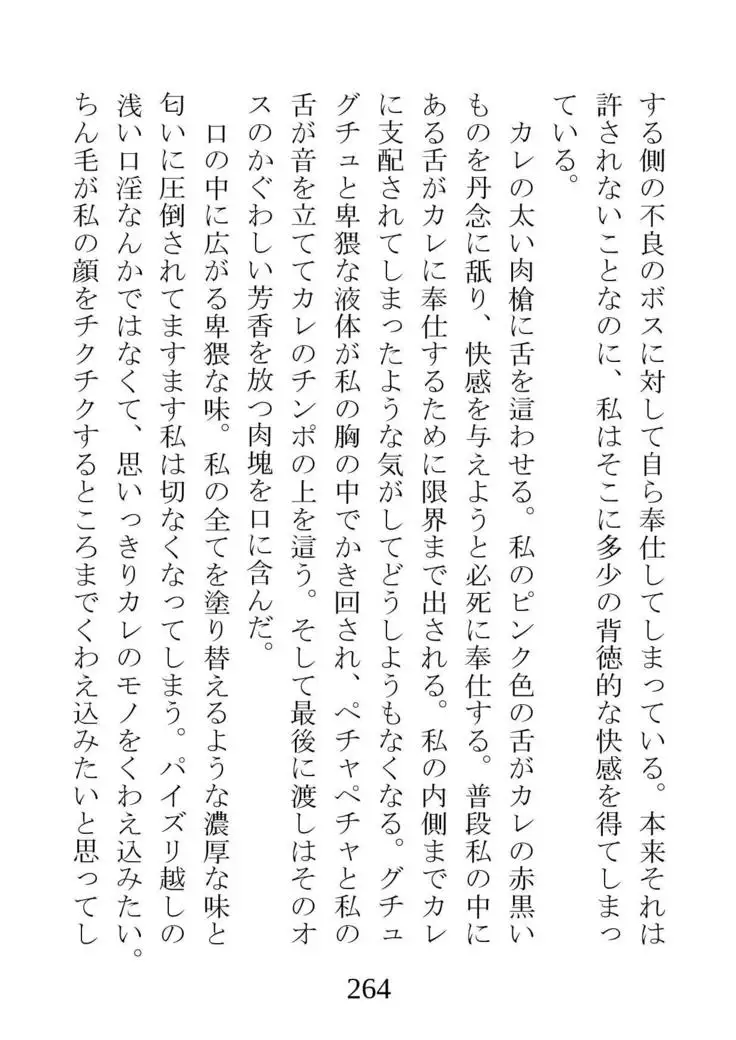 する側の不良のボスに対して自ら奉仕してしまっている。本来それは
許されないことなのに、私はそこに多少の背徳的な快感を得てしまっ
ている。
カレの太い肉槍に舌を這わせる。私のピンク色の舌がカレの赤黒い
ものを丹念に舐り、快感を与えようと必死に奉仕する。普段私の中に
ある舌がカレに奉仕するために限界まで出される。私の内側までカレ
に支配されてしまったような気がしてどうしようもなくなる。グチュ
グチュと卑猥な液体が私の胸の中でかき回され、ペチャペチャと私の
舌が音を立ててカレのチンポの上を這う。そして最後に渡しはそのオ
スのかぐわしい芳香を放つ肉塊を口に含んだ。
口の中に広がる卑猥な味。私の全てを塗り替えるような濃厚な味と
匂いに圧倒されてますます私は切なくなってしまう。パイズリ越しの
浅い口淫なんかではなくて、思いっきりカレのモノをくわえ込みたい。
ちん毛が私の顔をチクチクするところまでくわえ込みたいと思ってし
264